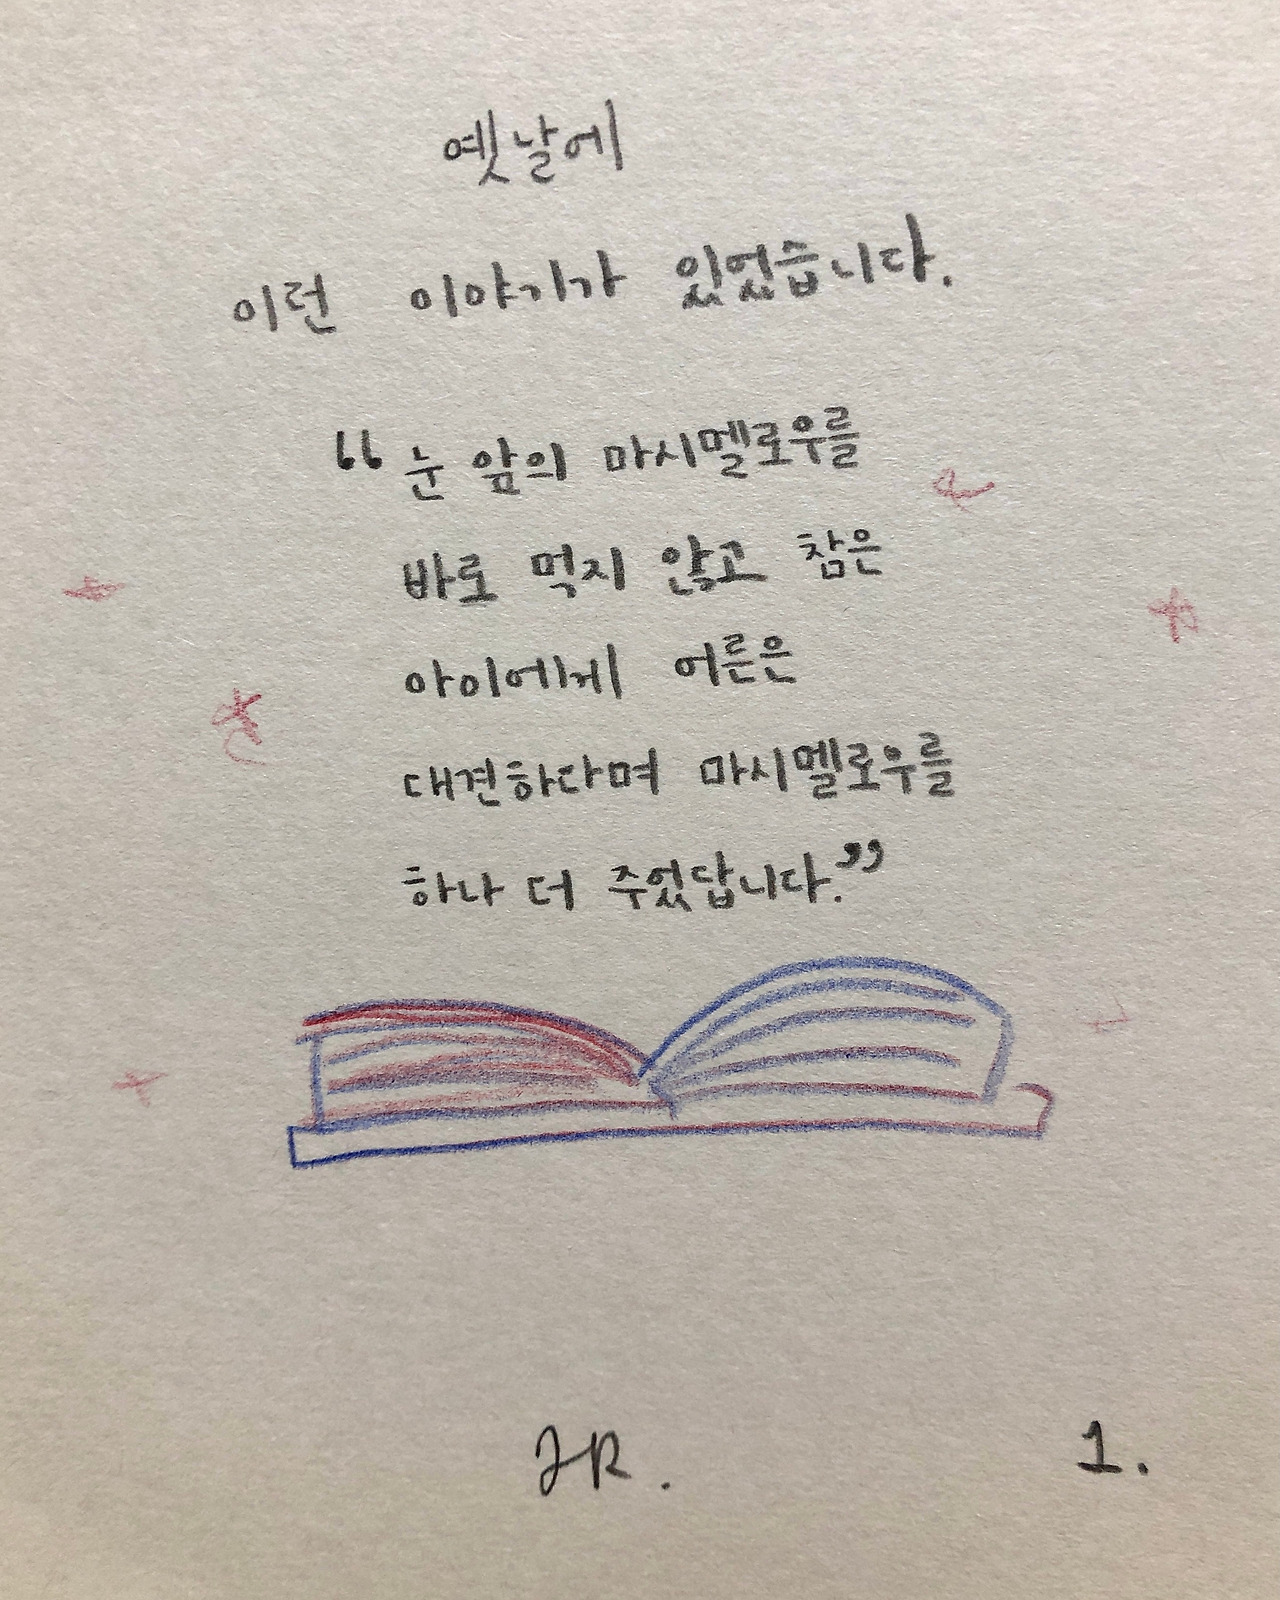 옛날에
이런 이야기가 있었습니다.
“눈 앞의 마시멜로우를
바로 먹지 않고 참은
아이에게 어른은
대견하다며 마시멜로우를
하나 더 주었답니다.”
JR.
1.